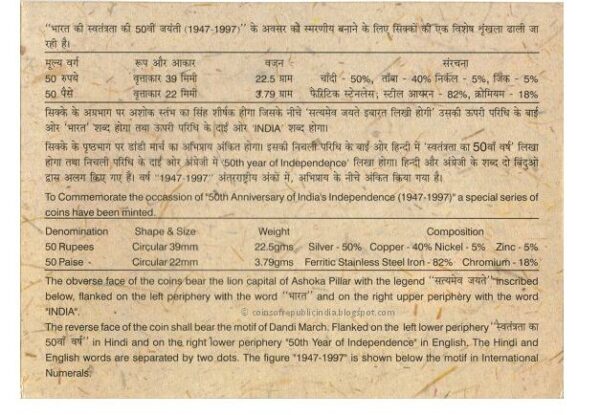 "भारत की स्वतंत्रता की 50वीं जयंती (1947-1997)" के अवसर को स्मरणीय बनाने के लिए सिक्कों की एक विशेष शृंखला ढाली जा
रही है।
मूल्य वर्ग रूप और आकार वजन संरचना
50 रुपये वृत्ताकार 39 मिमी 22.5 ग्राम चाँदी - 50%, ताँबा - 40% निकल - 5%, जिंक - 5%
50 पैसे वृत्ताकार 22 मिमी 3.79 ग्राम फेरिटिक स्टेनलेस; स्टील आयरन - 82%, क्रोमियम - 18%
सिक्के के अग्रभाग पर अशोक स्तंभ का सिंह शीर्षक होगा जिसके नीचे 'सत्यमेव जयते इबारत लिखी होगी' उसकी ऊपरी परिधि के बाईं
ओर 'भारत' शब्द होगा तथा ऊपरी परिधि के दाईं ओर 'INDIA' शब्द होगा।
सिक्के के पृष्ठभाग पर डांडी मार्च का अभिप्राय अंकित होगा। इसकी निचली परिधि के बाईं ओर हिन्दी में 'स्वतंत्रता का 50वाँ वर्ष' लिखा
होगा तथा निचली परिधि के दाईं ओर अंग्रेजी में '50th year of Independence' लिखा होगा। हिन्दी और अंग्रेजी के शब्द दो बिंदुओं
द्वारा अलग किए गए हैं। वर्ष "1947-1997" अंतरराष्ट्रीय अंकों में, अभिप्राय के नीचे अंकित किया गया है।
To Commemorate the occassion of "50th Anniversary of India's Independence (1947-1997)" a special series of
coins have been minted.
Denomination Shape & Size Weight Composition
50 Rupees Circular 39mm 22.5gms Silver - 50% Copper - 40% Nickel - 5% Zinc - 5%
50 Paise - Circular 22mm 3.79gms Ferritic Stainless Steel Iron - 82% Chromium - 18%
The obverse face of the coins bear the lion capital of Ashoka Pillar with the legend "सत्यमेव जयते" inscribed
below, flanked on the left periphery with the word "भारत" and on the right upper periphery with the word
"INDIA".
© coinsofrepublicindia.blogspot.com
The reverse face of the coin shall bear the motif of Dandi March. Flanked on the left lower periphery "स्वतंत्रता का
50वाँ वर्ष" in Hindi and on the right lower periphery "50th Year of Independence" in English. The Hindi and
English words are separated by two dots. The figure "1947-1997" is shown below the motif in International
Numerals.